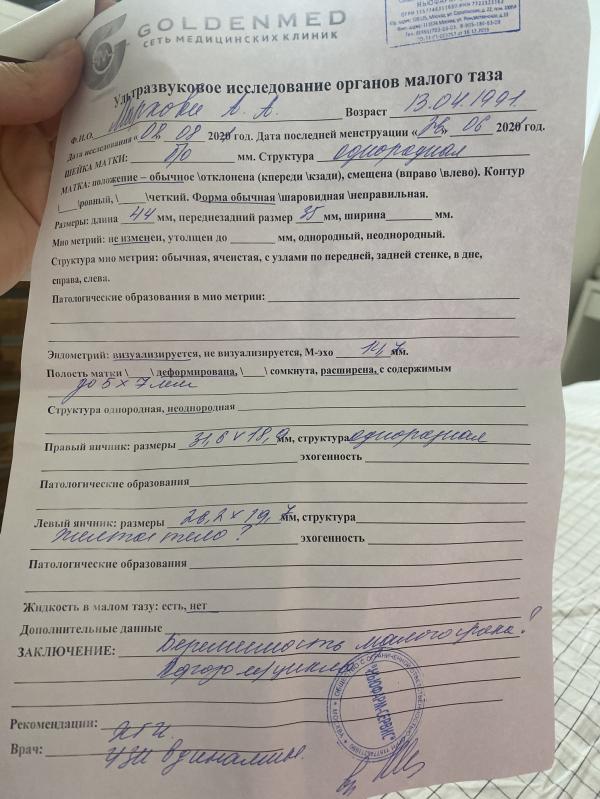 GOLDENMED
СЕТЬ МЕДИЦИНСКИХ КЛИНИК
Ультразвуковое исследование органов малого таза
Ф.И.О. А. А. Возраст 13.04.1991.
Дата исследования « 08 » 08 202 год. Дата последней менструации « » 06 202 год.
ШЕЙКА МАТКИ: мм. Структура однородная
МАТКА: положение – обычное \отклонена (кпереди \кзади), смещена (вправо \влево). Контур
\____\ровный, \____\четкий. Форма обычная \шаровидная \неправильная.
Размеры: длина 44 мм, переднезадний размер 35 мм, ширина_______ мм.
Мио метрий: не изменен, утолщен до _______ мм, однородный, неоднородный.
Структура мио метрия: обычная, ячеистая, с узлами по передней, задней стенке, в дне,
справа, слева.
Патологические образования в мио метрии:
Эндометрий: визуализируется, не визуализируется, М-эхо 14,7 мм.
Полость матки \____\ деформирована, \____\ сомкнута, расширена, с содержимым
до 5 х 7 мм
Структура однородная, неоднородная
Правый яичник: размеры 31,6 х 18,9 мм, структура однородная
эхогенность
Патологические образования
Левый яичник: размеры 28,2 х 19,7 мм, структура
Желтое тело ? эхогенность
Патологические образования
Жидкость в малом тазу: есть, нет
Дополнительные данные
ЗАКЛЮЧЕНИЕ: Беременность малого срока?
Рекомендации: ХГЧ
Врач: УЗИ в динамик.